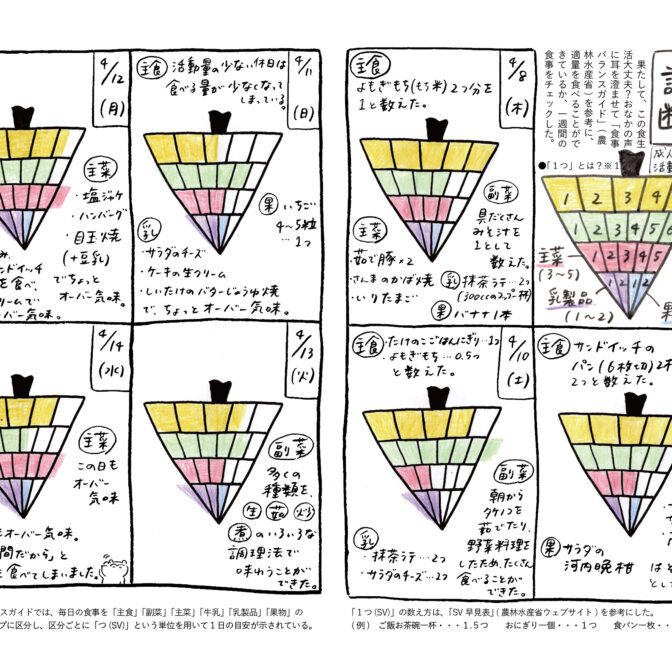 果たして、この食生
活大丈夫？おなかの声
に耳を澄ませて「食事
バランスガイド」（農
林水産省）を参考に、
適量を食べることがで
きているか、一週間の
食事をチェックした。
●「1つ」とは？※1
1 2 3 4
1 2 3 4 5 6
主菜
(3~5)
1 2 3 4 5
乳製品
(1~2)
1 2 1 2
果
4/8
(木)
よもぎもち(もち米)2つ分を
1と数えた。
主食
副菜
具だくさん
みそ汁を
1として
数えた。
主菜
・茹で豚×2
・さんまのかば焼
・いりたまご
乳 抹茶ラテ…2つ
(300ccのコップ一杯)
果 バナナ1本
主食 サンドイッチの
パン(6枚切)2枚
2つと数えた。
果 サラダの
河内晩柑
4/10
(土)
主食 ・たけのこごはんにぎり…1つ
・よもぎもち…0.5つ
と数えた。
副菜
朝から
タケノコを
茹でたり、
野菜料理を
したため、たくさん
食べることが
できた。
乳
・抹茶ラテ…2つ
・サラダのチーズ…2つ
4/11
(日)
主食 活動量の少ない休日は
食べる量が少なくなって
しまっている。
果 いちご
4~5粒
…1つ
乳
・サラダのチーズ
・ケーキの生クリーム
・しいたけのバターじょうゆ焼
で、ちょっとオーバー気味。
4/12
(月)
主菜
・塩ジャケ
・ハンバーグ
・目玉焼
(+豆乳)
でちょっと
オーバー気味。
ンドイッチ
を食べ、
リームで
ーバー気味。
4/13
(火)
副菜
多くの
種類を、
生 茹 炒
煮のいろいろな
調理法で
味わうことが
できた。
4/14
(水)
主菜
この日も
オーバー
気味
もオーバー気味。
間だから」と
を食べてしまいました。
スガイドでは、毎日の食事を「主食」「副菜」「主菜」「牛乳」「乳製品」「果物」の
プに区分し、区分ごとに「つ(SV)」という単位を用いて1日の目安が示されている。
「1つ(SV)」の数え方は、「SV早見表」(農林水産省ウェブサイト)を参考にした。
(例) ご飯お茶碗一杯・・・1.5つ おにぎり一個・・・1つ 食パン一枚・・・